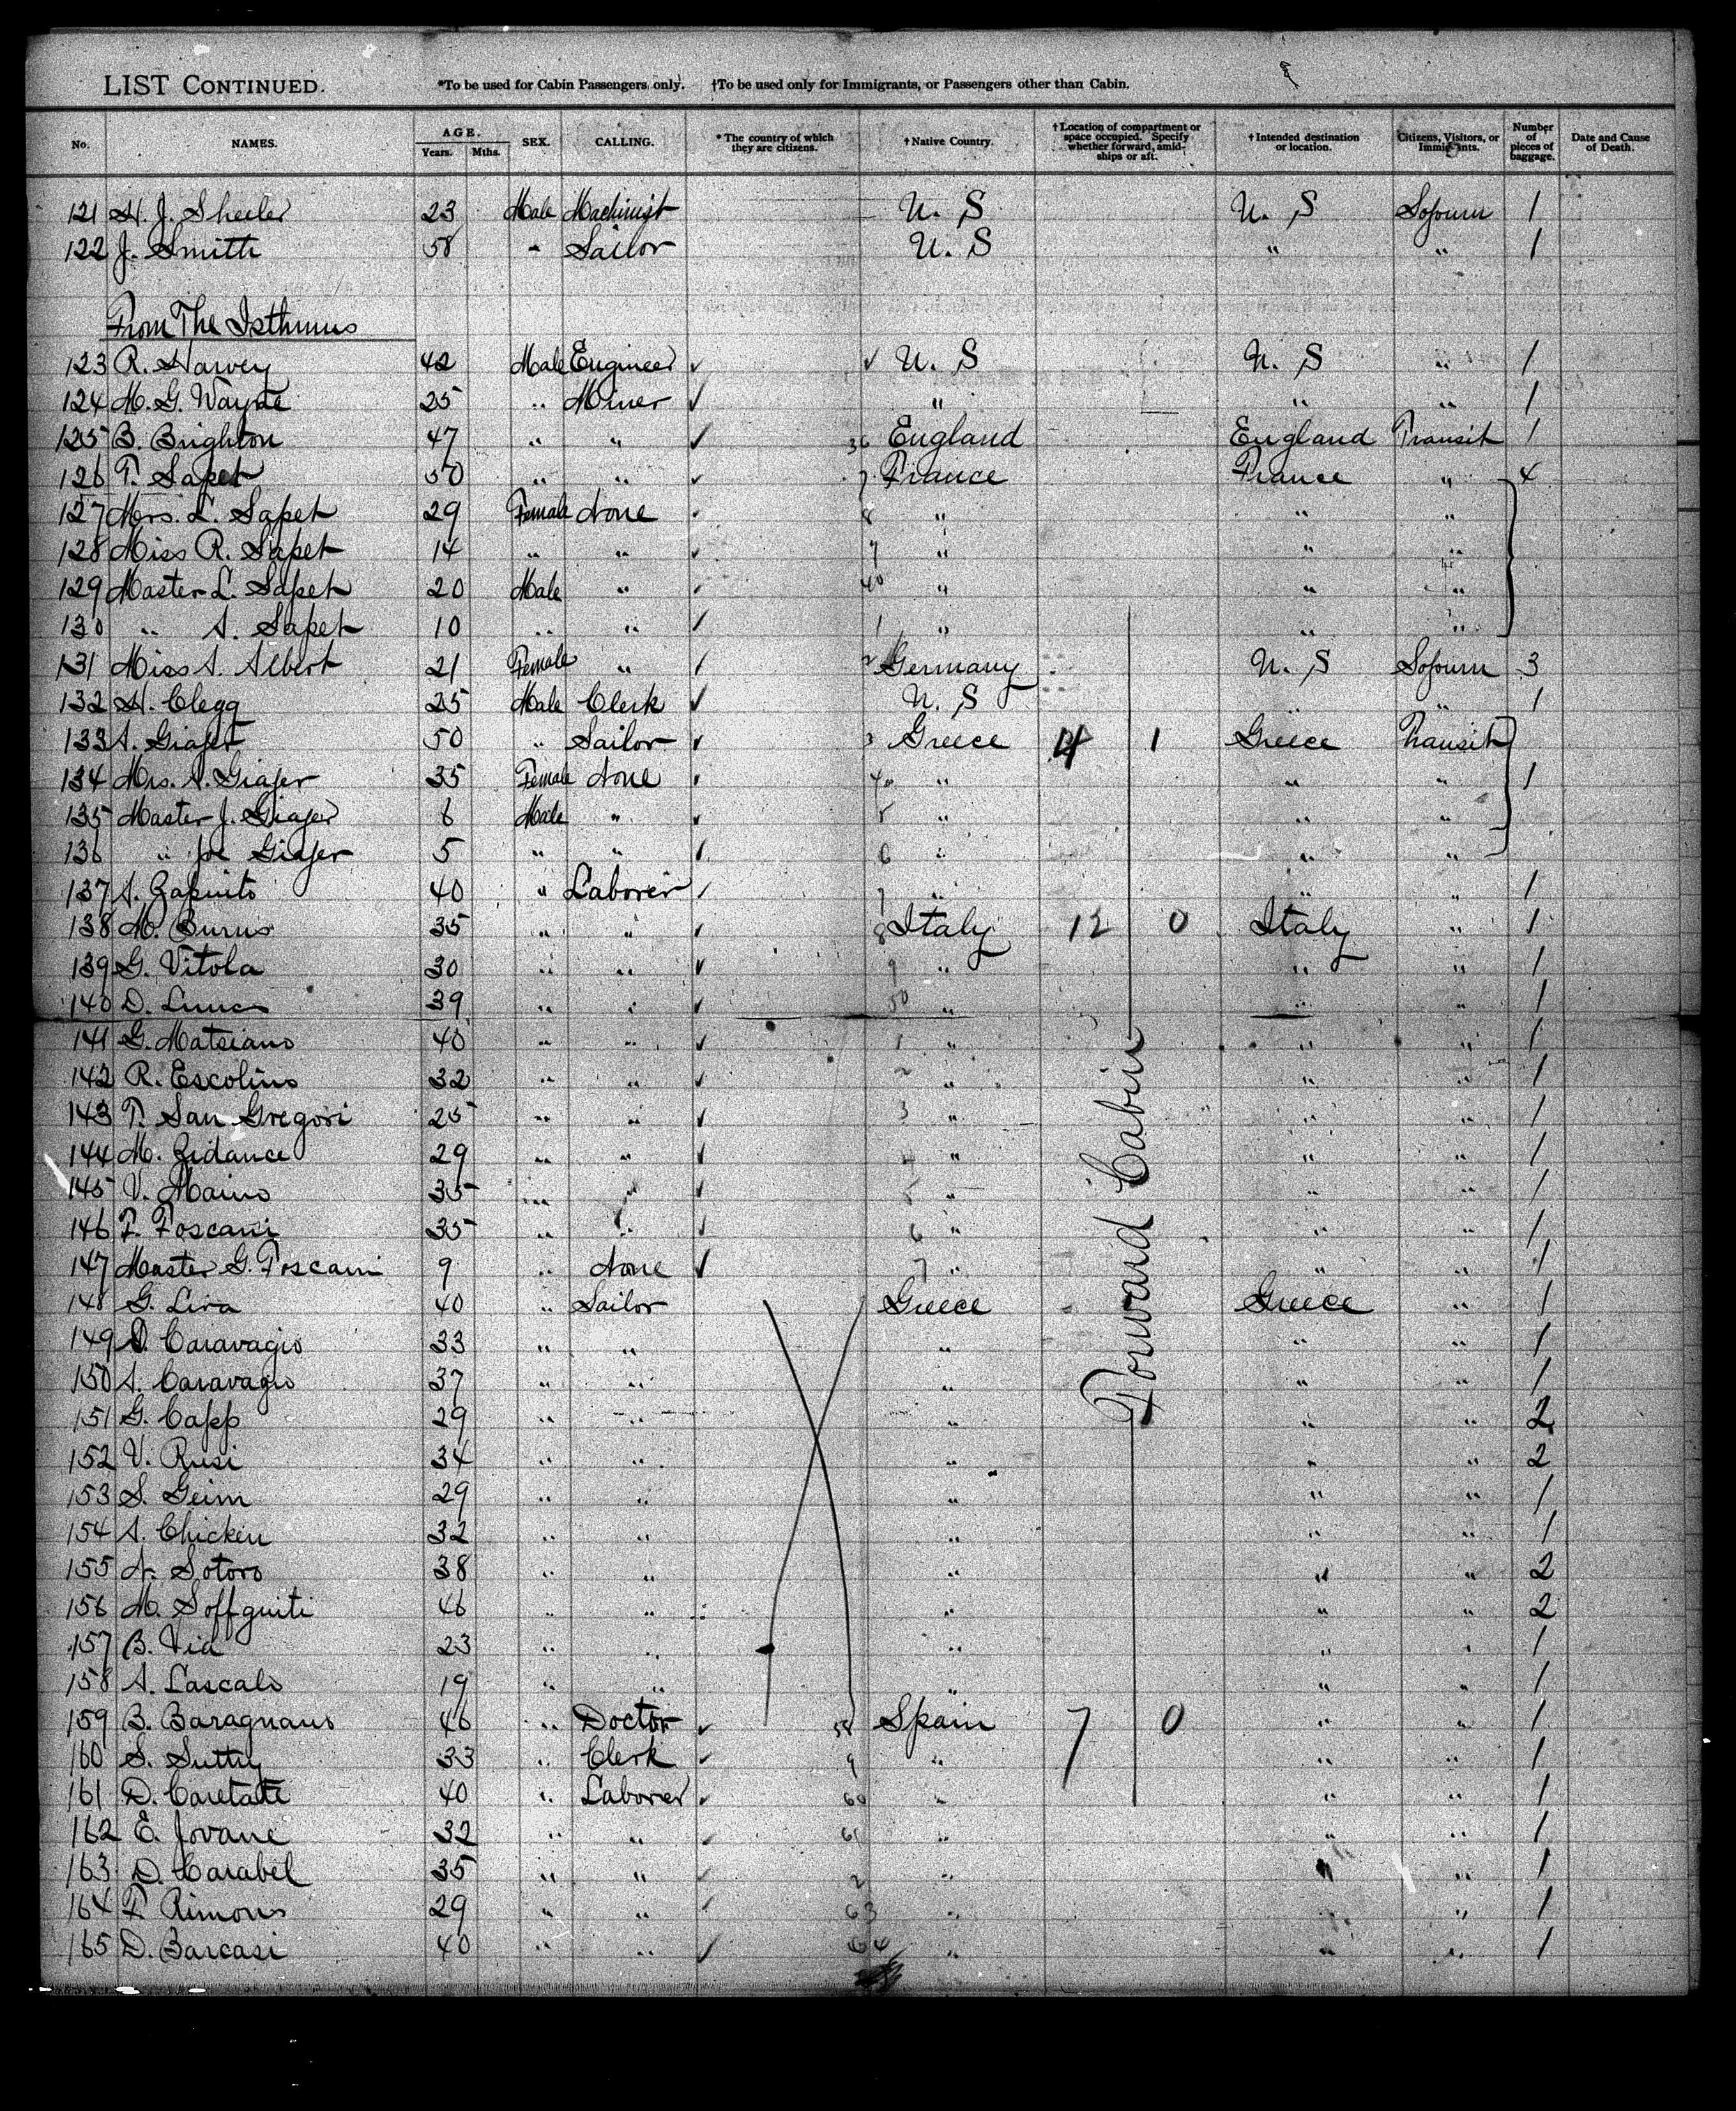 LIST CONTINUED. *To be used for Cabin Passengers only. †To be used only for Immigrants, or Passengers other than Cabin.
No. NAMES. AGE. Years. Mths. SEX. CALLING. * The country of which they are citizens. † Native Country. † Location of compartment or space occupied. Specify whether forward, amidships or aft. † Intended destination or location. Citizens, Visitors, or Immigrants. Number of pieces of baggage. Date and Cause of Death.
121 H. J. Sheeler 23 Male Machinist U. S U. S Sojourn 1
122 J. Smith 58 " Sailor U. S " " 1
From The Isthmus
123 R. Harvey 42 Male Engineer ✓ ✓ U. S U. S " 1
124 M. G. Wayne 25 " Miner ✓ " " " 1
125 B. Brighton 47 " " ✓ 36 England England Transit 1
126 F. Sapet 50 " " ✓ 7 France France " 4
127 Mrs. L. Sapet 29 Female None ✓ 8 " " "
128 Miss R. Sapet 14 " " ✓ 9 " " "
129 Master L. Sapet 20 Male " ✓ 40 " " "
130 " A. Sapet 10 " " ✓ 1 " " "
131 Miss A. Albert 21 Female " ✓ 2 Germany U. S Sojourn 3
132 H. Clegg 25 Male Clerk ✓ U. S " " 1
133 A. Giafer 50 " Sailor ✓ 3 Greece 4 1 Greece Transit
134 Mrs. A. Giafer 35 Female None ✓ 4 " " " 1
135 Master J. Giafer 6 Male " ✓ 5 " " "
136 " Joe Giafer 5 " " ✓ 6 " " "
137 A. Zapinto 40 " Laborer ✓ 7 " " " 1
138 M. Burns 35 " " ✓ 8 Italy 12 0 Italy " 1
139 G. Vitola 30 " " ✓ 9 " " " 1
140 D. 39 " " ✓ 50 " " " 1
141 G. Matsiano 40 " " ✓ 1 " " " 1
142 R. Escolino 32 " " ✓ 2 " " " 1
143 T. San Gregori 25 " " ✓ 3 " " " 1
144 M. Zidance 29 " " ✓ 4 " " " 1
145 V. Maino 35 " " ✓ 5 " " " 1
146 F. Foscani 35 " " ✓ 6 " " " 1
147 Master G. Foscani 9 " None ✓ 7 " " " 1
Forward Cabin
148 G. Lira 40 " Sailor Greece Greece " 1
149 D. Caravagio 33 " " " " " 1
150 A. Caravagio 37 " " " " " 1
151 G. Capp 29 " " " " " 2
152 V. Rusi 34 " " " " " 2
153 S. Geim 29 " " " " " 1
154 A. Chicken 32 " " " " " 1
155 A. Sotoro 38 " " " " " 2
156 M. Soffguiti 46 " " " " " 2
157 B. Via 23 " " " " " 1
158 A. Cascalo 19 " " " " " 1
159 B. Baragnano 46 " Doctor ✓ 58 Spain 7 0 " " 1
160 S. Suttiy 33 " Clerk ✓ 9 " " " 1
161 D. Caretatte 40 " Laborer ✓ 60 " " " 1
162 E. Jovane 32 " " ✓ 61 " " " 1
163 D. Carabel 35 " " ✓ 2 " " " 1
164 F. Rimons 29 " " ✓ 63 " " " 1
165 D. Barcasi 40 " " ✓ 64 " " " 1